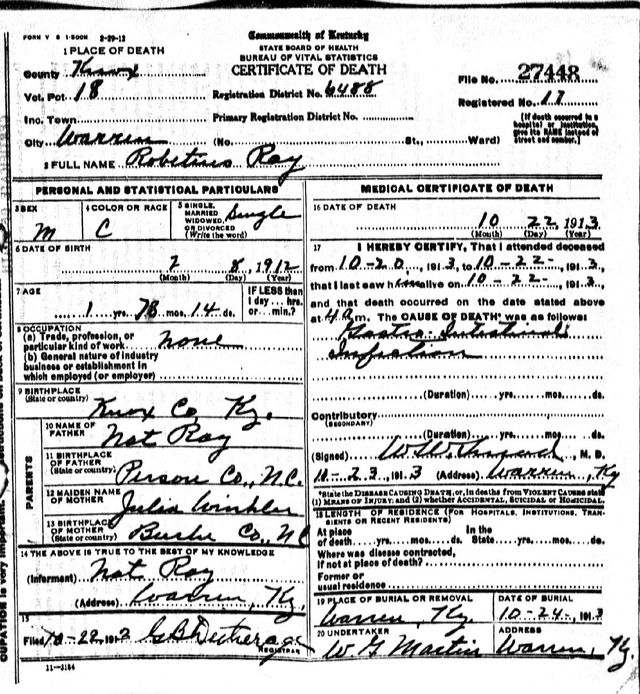 FORM V S 1-500M 2-29-12
Commonwealth of Kentucky
STATE BOARD OF HEALTH
BUREAU OF VITAL STATISTICS
CERTIFICATE OF DEATH
1 PLACE OF DEATH
County Knox
Vot. Pct. 18
Inc. Town
City Warren (No. St., Ward)
Registration District No. 6488
Primary Registration District No.
File No. 27448
Registered No. 17
[If death occurred in a hospital or institution, give its NAME instead of street and number.]
2 FULL NAME Robetius Ray
PERSONAL AND STATISTICAL PARTICULARS
3 SEX
M
4 COLOR OR RACE
C
5 SINGLE, MARRIED WIDOWED, OR DIVORCED (Write the word) Single
6 DATE OF BIRTH
2 8, 1912
(Month) (Day) (Year)
7 AGE
1 yrs. 8 mos. 14 ds.
IF LESS than 1 day... hrs. or... min.?
8 OCCUPATION
(a) Trade, profession, or particular kind of work none
(b) General nature of industry business or establishment in which employed (or employer)
9 BIRTHPLACE
(State or country)
Knox Co Ky.
PARENTS
10 NAME OF FATHER
Nat Ray
11 BIRTHPLACE OF FATHER
(State or country) Person Co., N.C.
12 MAIDEN NAME OF MOTHER
Julia Winkler
13 BIRTHPLACE OF MOTHER
(State or country) Burke Co., N C
14 THE ABOVE IS TRUE TO THE BEST OF MY KNOWLEDGE
(Informant) Nat Ray
(Address) Warren, Ky.
15
Filed 10-22, 191
REGISTRAR
11-3184
MEDICAL CERTIFICATE OF DEATH
16 DATE OF DEATH
10 22, 1913
(Month) (Day) (Year)
17 I HEREBY CERTIFY, That I attended deceased
from 10-20, 1913, to 10-22-, 1913,
that I last saw him alive on 10-22-, 1913,
and that death occurred on the date stated above
at 4 m. The CAUSE OF DEATH* was as follows:
Gastro-Intestinal
Infection
(Duration) yrs. mos. ds.
Contributory
(SECONDARY)
(Duration) yrs. mos. ds.
(Signed) M. D.
10-23, 1913 (Address) Warren, Ky
*State the DISEASE CAUSING DEATH, or, in deaths from VIOLENT CAUSES state (1) MEANS OF INJURY; and (2) whether ACCIDENTAL, SUICIDAL or HOMICIDAL.
18 LENGTH OF RESIDENCE (FOR HOSPITALS, INSTITUTIONS, TRANSIENTS OR RECENT RESIDENTS)
At place of death yrs. mos. ds. In the State yrs. mos. ds.
Where was disease contracted,
If not at place of death?
Former or usual residence
19 PLACE OF BURIAL OR REMOVAL
Warren, Ky.
DATE OF BURIAL
10-24-, 1913
20 UNDERTAKER
W G Martin
ADDRESS
Warren, Ky.